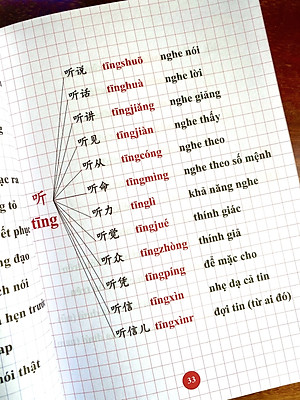 ạc ra
g tỏ
ết phục
g đạo
ch nói
i hẹn trước
ap
ói thật
听
tīng
听说 tīngshuō nghe nói
听话 tīnghuà nghe lời
听讲 tīngjiǎng nghe giảng
听见 tīngjiàn nghe thấy
听从 tīngcóng nghe theo
听命 tīngmìng nghe theo số mệnh
听力 tīnglì khả năng nghe
听觉 tīngjué thính giác
听众 tīngzhòng thính giả
听凭 tīngpíng để mặc cho
听信 tīngxìn nhẹ dạ cả tin
听信儿 tīngxìnr đợi tin (từ ai đó)
33